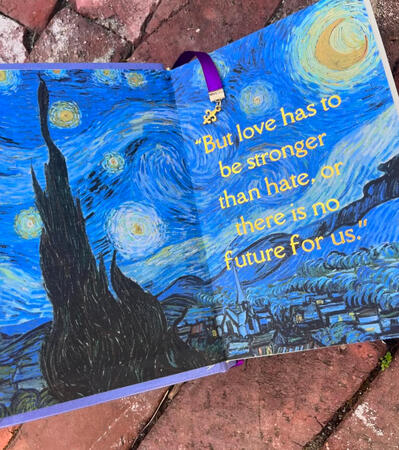 "But love has to
be stronger
than hate, or
there is no
future for us."